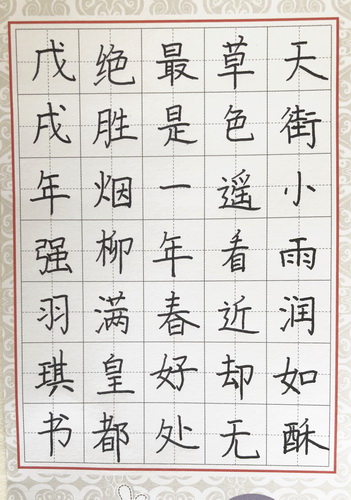 天街小雨润如酥
草色遥看近却无
最是一年春好处
绝胜烟柳满皇都
戊戌年强羽琪书